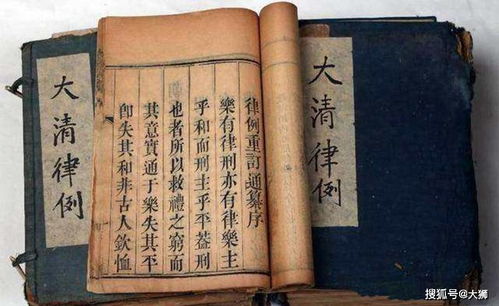 大清律例
律例重訂通纂序
樂有律刑亦有律樂主
乎和而刑主乎平葢刑
也者所以救禮之窮而
其意實通于樂失其平
卽失其和非古人欽恤
大清律例
搜狐号@大狮